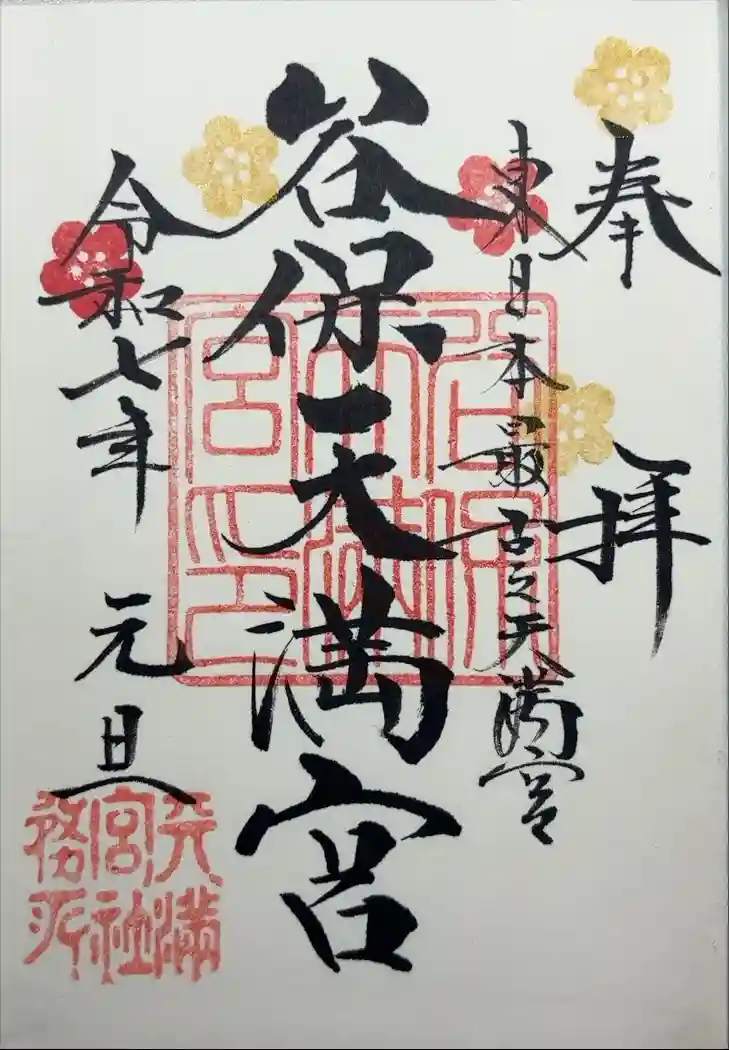 奉拝
東日本最古之天満宮
谷保天満宮
令和七年 元旦
天満
宮社
務所